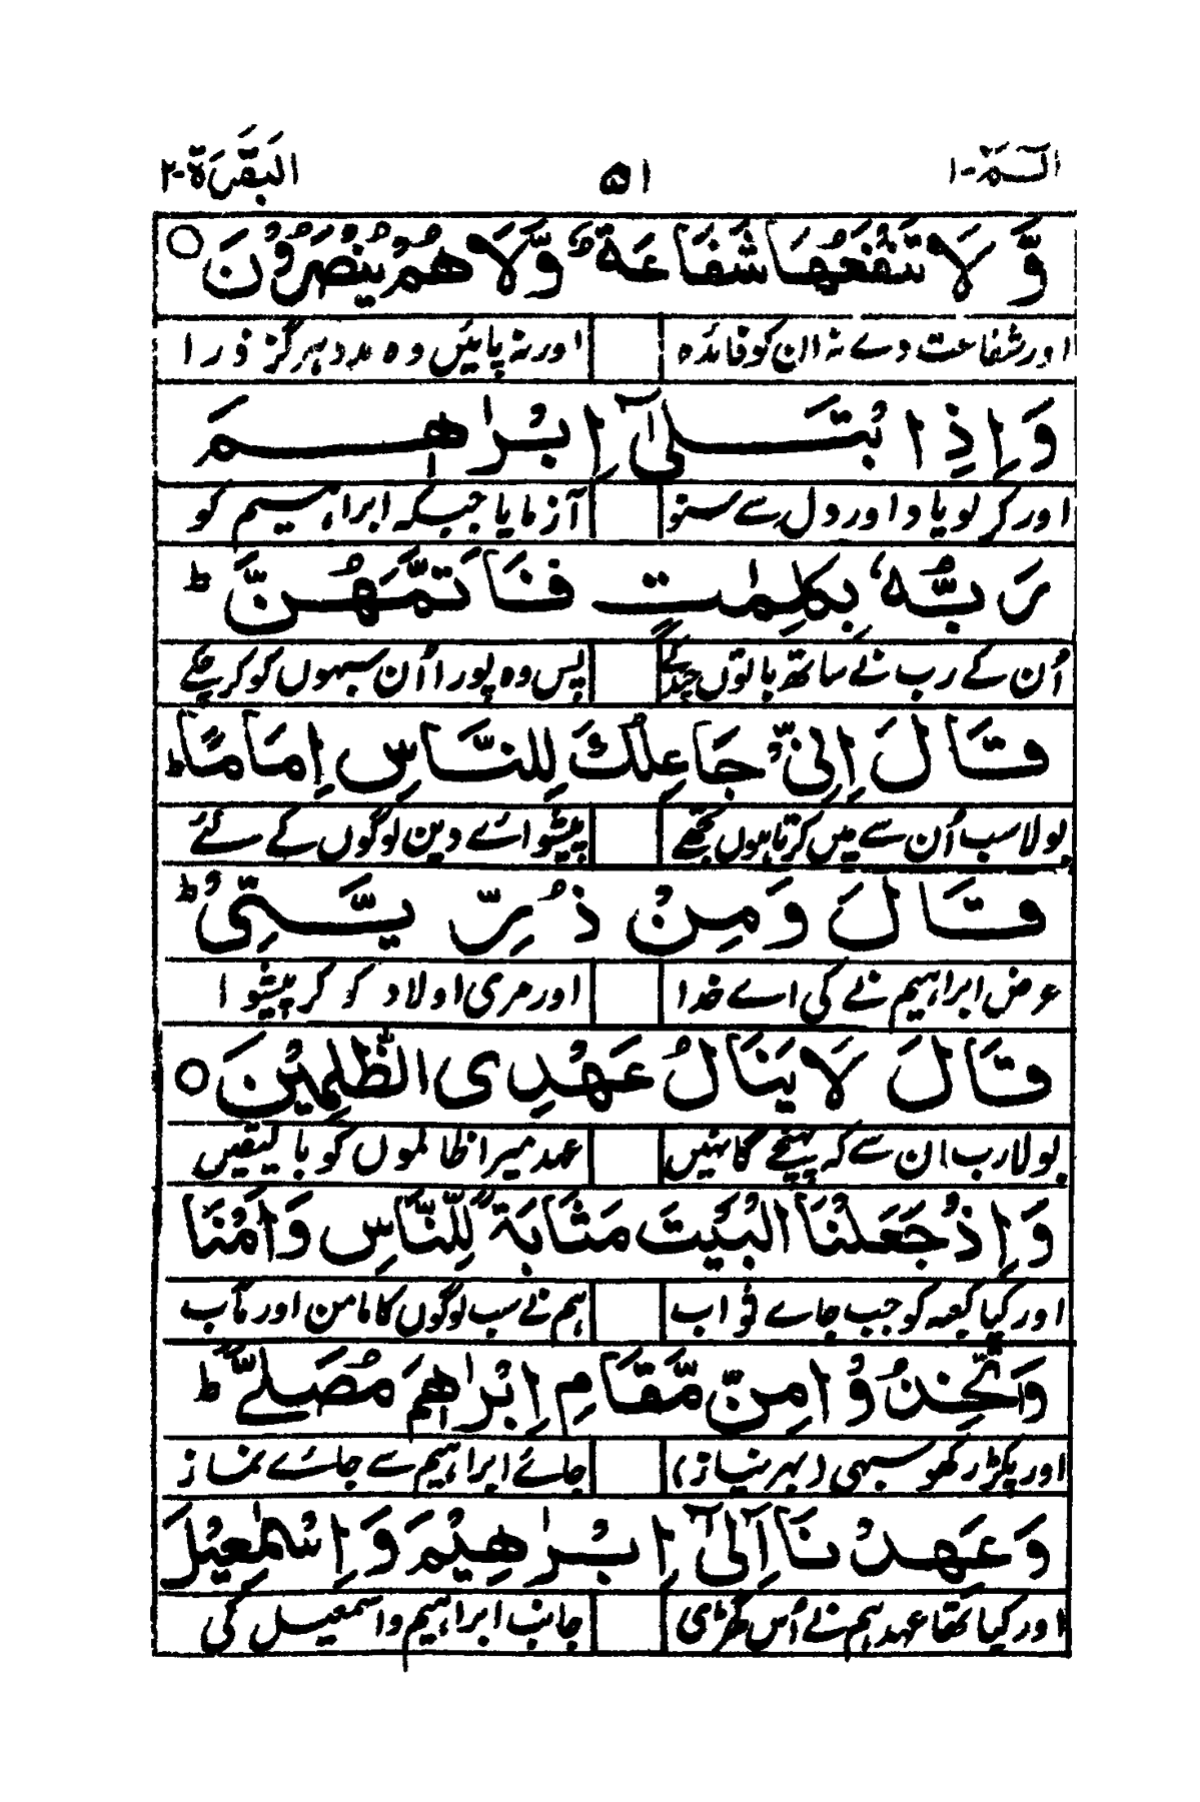 الٓمّٓ-۱ ۵۱ البَقَرَة-۲
وَّلَا تَنْفَعُهَا شَفَاعَةٌ وَّلَا هُمْ يُنْصَرُوْنَ ○
اور شفاعت دے نہ ان کو فائدہ اور نہ پائیں وہ مدد ہرگز ذرا
وَاِذِ ابْتَلٰىٓ اِبْرٰهٖمَ
اور کر لو یاد اور دل سے سنو آزمایا جبکہ ابراہیم کو
رَبُّهٗ بِكَلِمٰتٍ فَاَتَمَّهُنَّ ؕ
اُن کے رب نے ساتھ باتوں چند کے پس وہ پورا اُن سبہوں کو کر چکے
قَالَ اِنِّىْ جَاعِلُكَ لِلنَّاسِ اِمَامًا ؕ
بولا سب اُن سے میں کرتا ہوں تجھے پیشوا اے دین لوگوں کے لئے
قَالَ وَمِنْ ذُرِّيَّتِىْ ؕ
عرض ابراہیم نے کی اے خدا اور مری اولاد کو کر پیشوا
قَالَ لَا يَنَالُ عَهْدِى الظّٰلِمِيْنَ ○
بولا رب ان سے کہ پہنچے گا نہیں عہد میرا ظالموں کو بالیقیں
وَاِذْ جَعَلْنَا الْبَيْتَ مَثَابَةً لِّلنَّاسِ وَاَمْنًا
اور کیا کعبہ کو جب جاے ثواب ہم نے سب لوگوں کا مامن اور مآب
وَاتَّخِذُوْا مِنْ مَّقَامِ اِبْرٰهٖمَ مُصَلًّى ؕ
اور پکڑ رکھو سبہی (بہر نیاز) جائے ابراہیم سے جائے نماز
وَعَهِدْنَآ اِلٰىٓ اِبْرٰهِيْمَ وَاِسْمٰعِيْلَ
اور کیا تھا عہد ہم نے اُس گھڑی جانب ابراہیم و اسمعیل کی